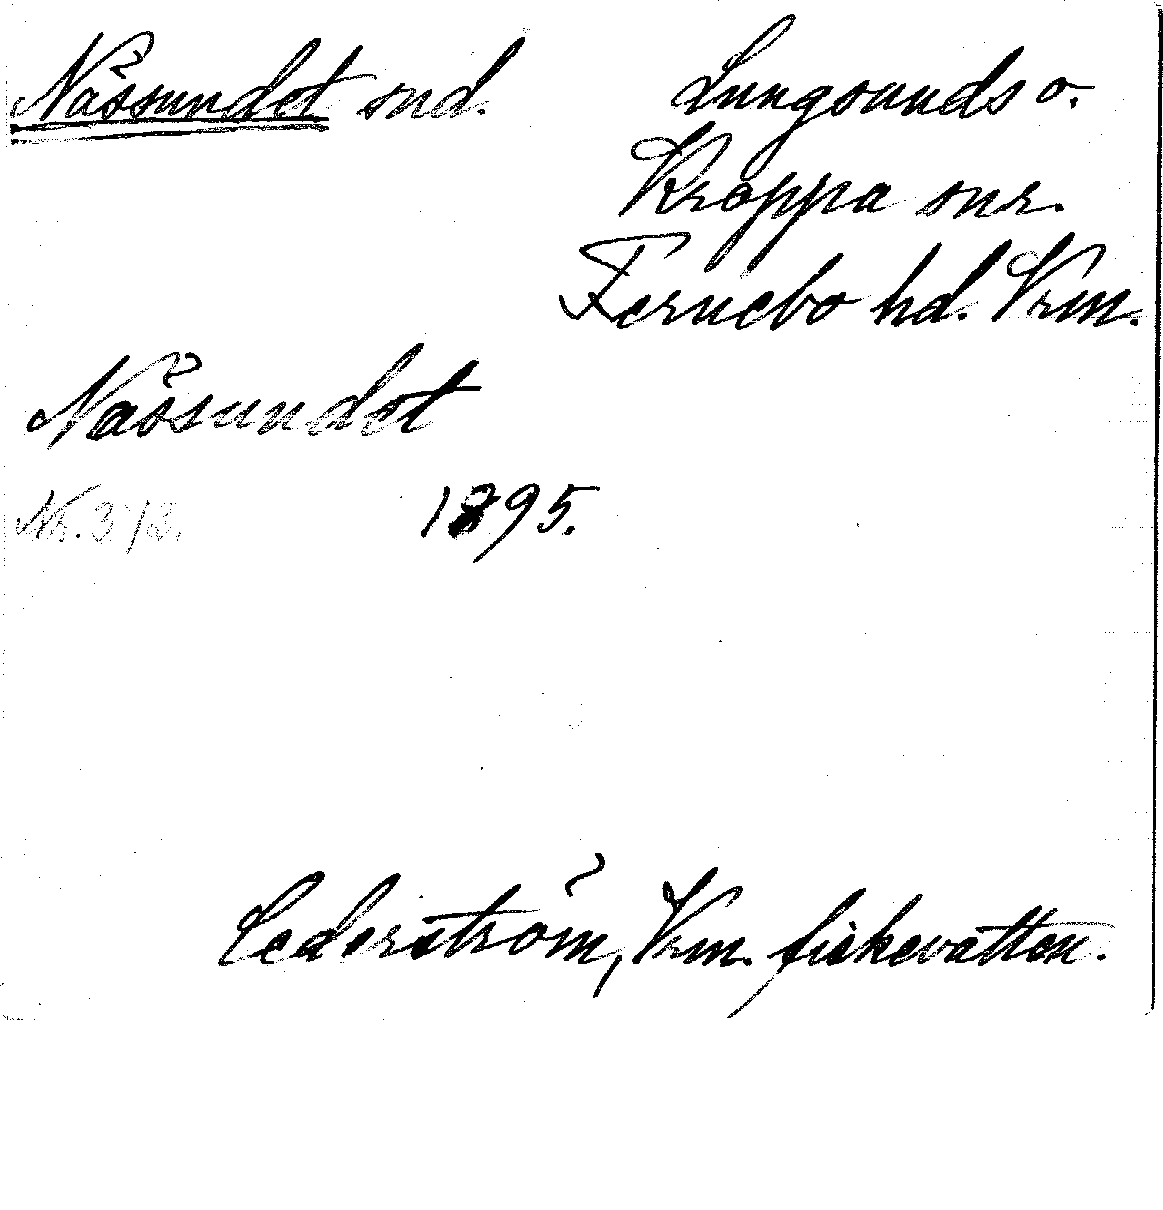 Nässundet snd. Lungsunds o.
Kroppa snr.
Fernebo hd. Vrm.
Nässundet
Nr. 373. 1895.
Cederström, Vrm. fiskevatten.